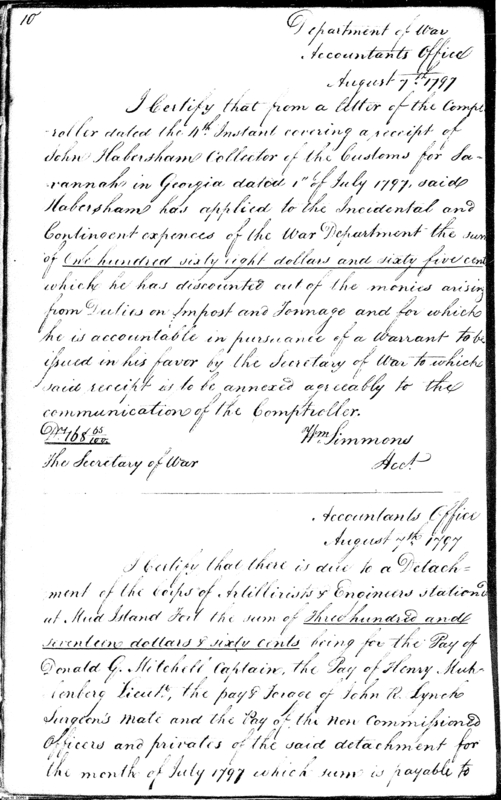 10
Department of War
Accountants Office
August 7th 1797
I Certify that from a letter of the Comp
-roller dated the 4th Instant covering a receipt of
John Habersham Collector of the Customs for Sa-
vannah in Georgia dated 1st of July 1797, said
Habersham has applied to the Incidental and
Contingent expences of the War Department the sum
of One hundred sixty eight dollars and sixty five cent
which he has discounted out of the monies arising
from Duties on Impost and Tonnage and for which
he is accountable in pursuance of a Warrant to be
issued in his favor by the Secretary of War to which
said receipt is to be annexed agreeably to the
communication of the Comptroller.
Drs 168 65/100 Wm Simmons
The Secretary of War Acct.
Accountants Office
August 7th 1797
I Certify that there is due to a Detach-
ment of the Corps of Artillirists & Engineers stationed
at Mud Island Fort the sum of Three hundred and
seventeen dollars & sixty cents being for the Pay of
Donald G. Mitchell Captain, the Pay of Henry Muh-
lenberg Lieut., the pay & Forage of John R. Lynch
Surgeon's Mate and the Pay of the non Commissioned
Officers and privates of the said detachment for
the month of July 1797 which sum is payable to